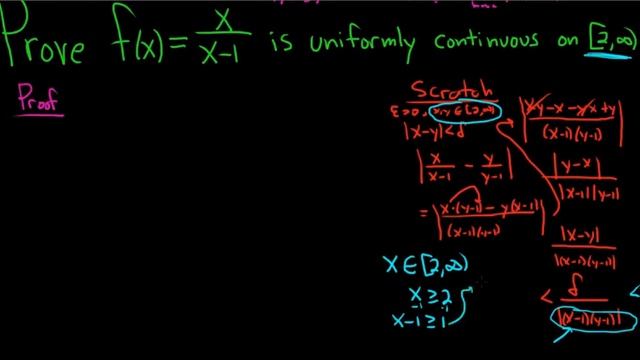 Prove f(x) = x/(x-1) is uniformly continuous on [2,∞)
Proof
Scratch
ε>0, x,y ∈ [2,∞)
|x-y| < δ
|x/(x-1) - y/(y-1)|
= |(x·(y-1) - y(x-1))/((x-1)(y-1))|
|(xy-x-yx+y)/((x-1)(y-1))|
|y-x|/(|x-1||y-1|)
|x-y|/|(x-1)(y-1)|
< δ/|(x-1)(y-1)| <
x ∈ [2,∞)
x ≥ 2
-1 -1
x-1 ≥ 1